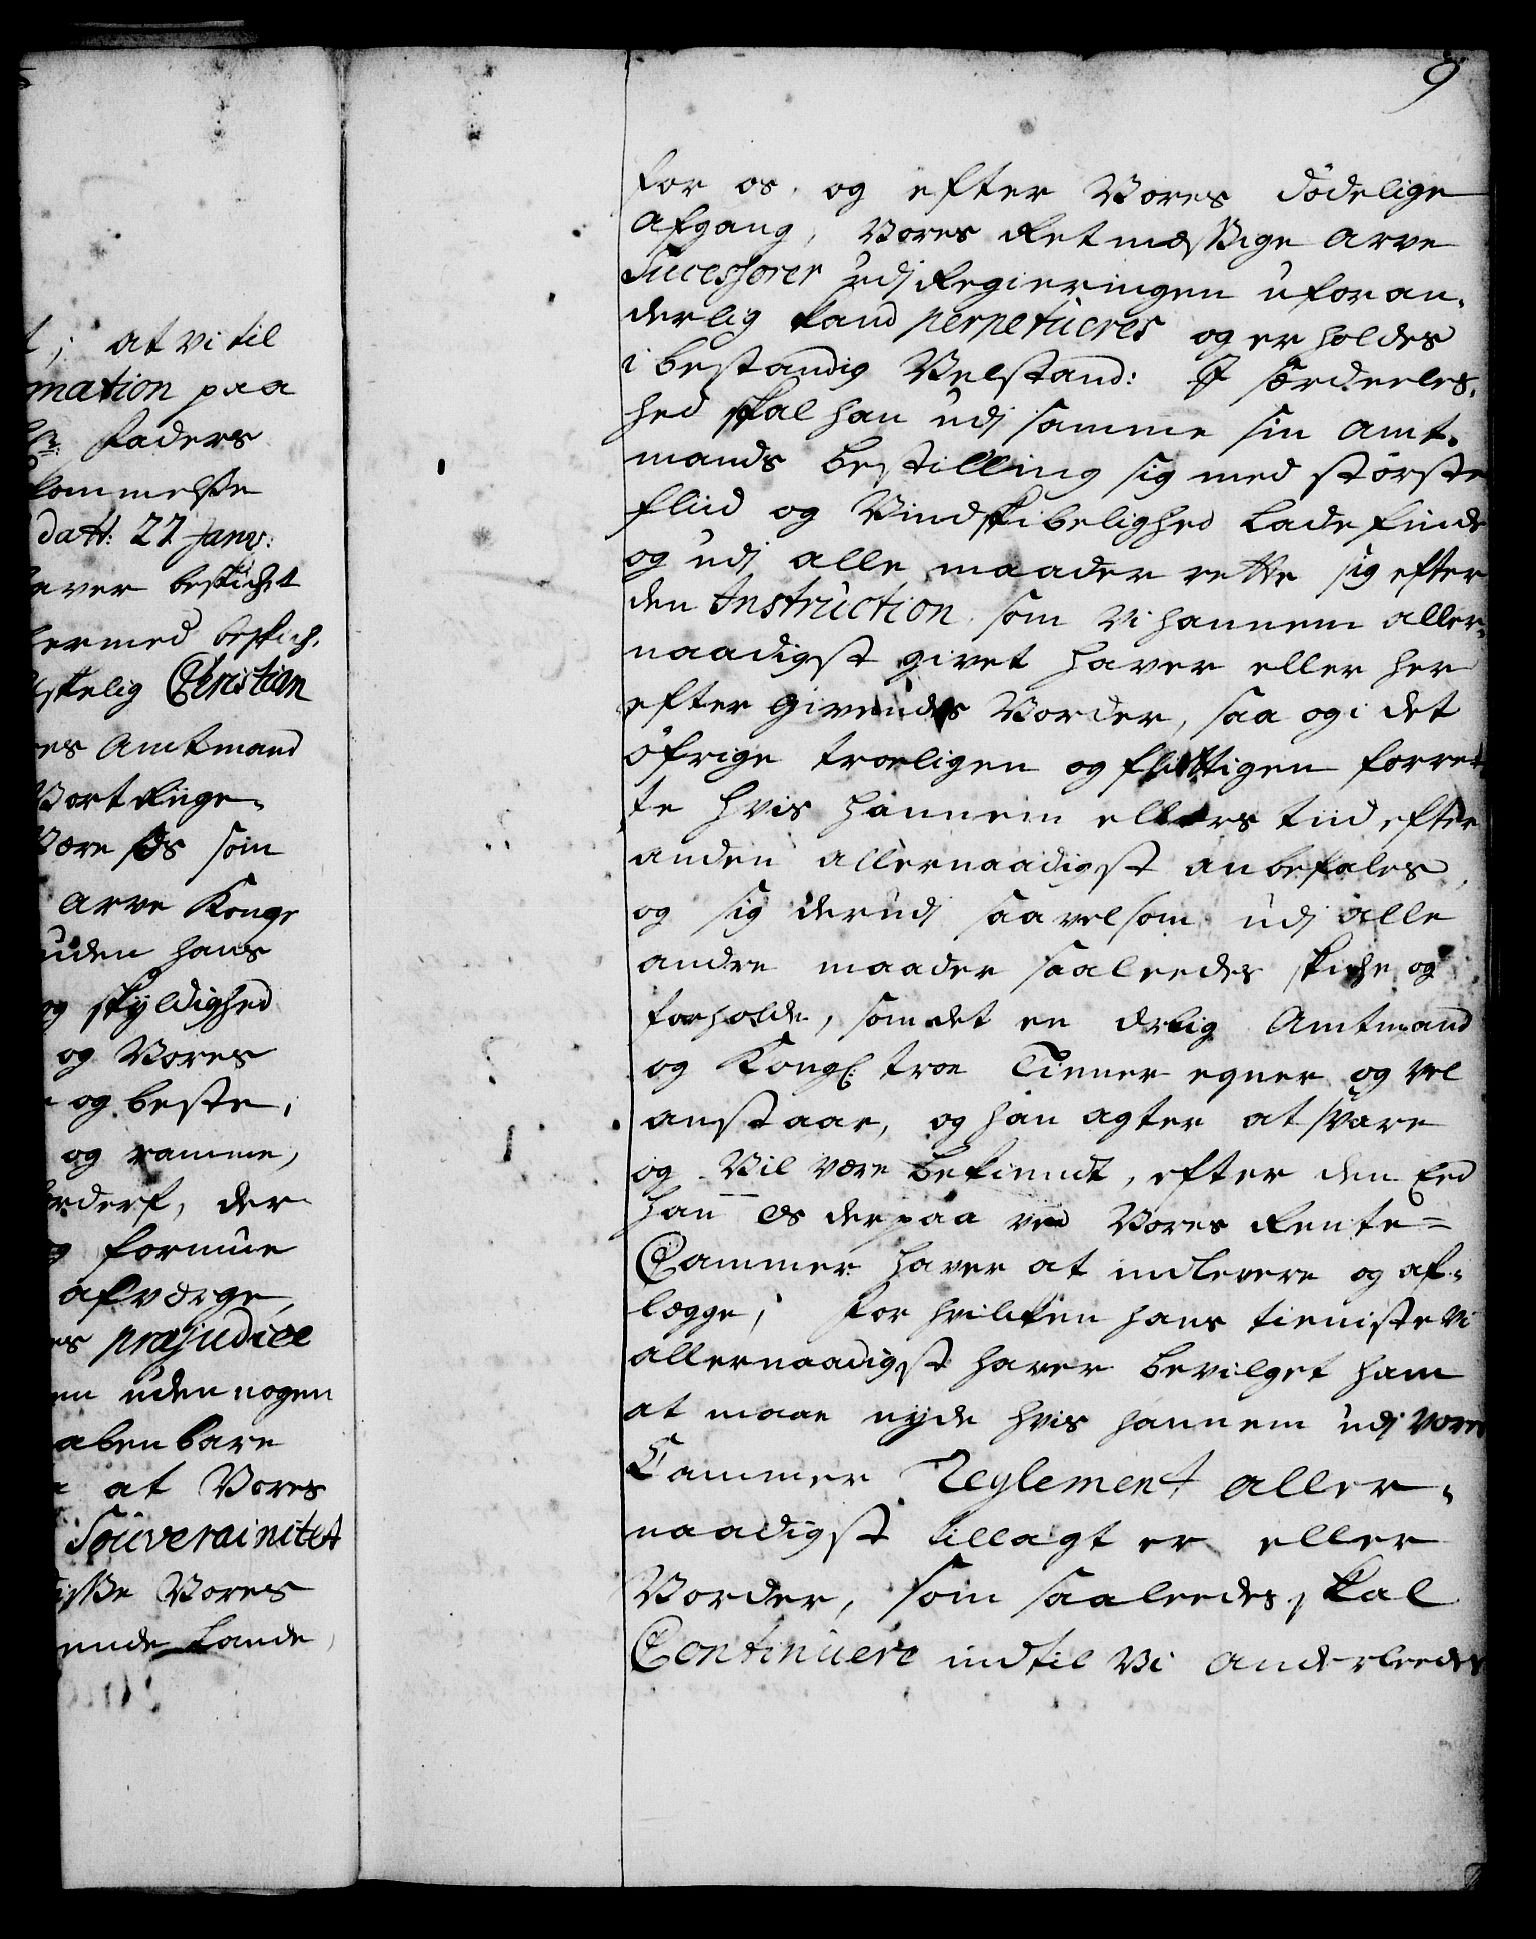 t; at vi til
mation paa
Faders
kommelse
dat: 22 Janv:
aver beskichet
hermed beskich,
lskelig Christian
res Amtmand
Vort Riige,
Være Os som
Arve Konge
uden hans
og skyldighed
og Vores
og beste,
og ramme,
rderf, der
og formue
afværge,
es præjudice
en uden nogen
abenbare
at Vores
Souverainitet
isse Vores
ende Lande
9
for os, og efter Vores dødelige
Afgang, Vores Retmæssige Arve
Sucessorer udj Regieringen uforan,
derlig kand perpetueres og erholdes
i bestandig Velstand: I særdeeles,
hed skal han udj samme sin Amt,
mands bestilling sig med største
fliid og Vindskibelighed lade finde
og udj alle maader rette sig efter
den Instruction som Vi hannem aller,
naadigst givet haver eller her
efter givendes Vorder, saa og i det
øfrige troeligen og flittigen forret
te hvis hannem ellers tiid efter
anden allernaadigst anbefales,
og sig derudj saavelsom udj alle
andre maader saaleedes skiche og
forholde, som det en ærlig Amtmand
og Kongl: troe Tienner egner og vel
anstaar, og han agter at svare
og Vil være bekiendt, efter den Eed
han Os derpaa ved Vores Rente=
Cammer haver at indlevere og af,
lægge, for hvilken hans tieniste Vi
allernaadigst haver bevilget ham
at maae nyde hvis hannem udj Vores
Cammer Reglement aller,
naadigst tillagt er eller
Vorder, som saaleedes skal
Continuere indtil Vi anderleedes